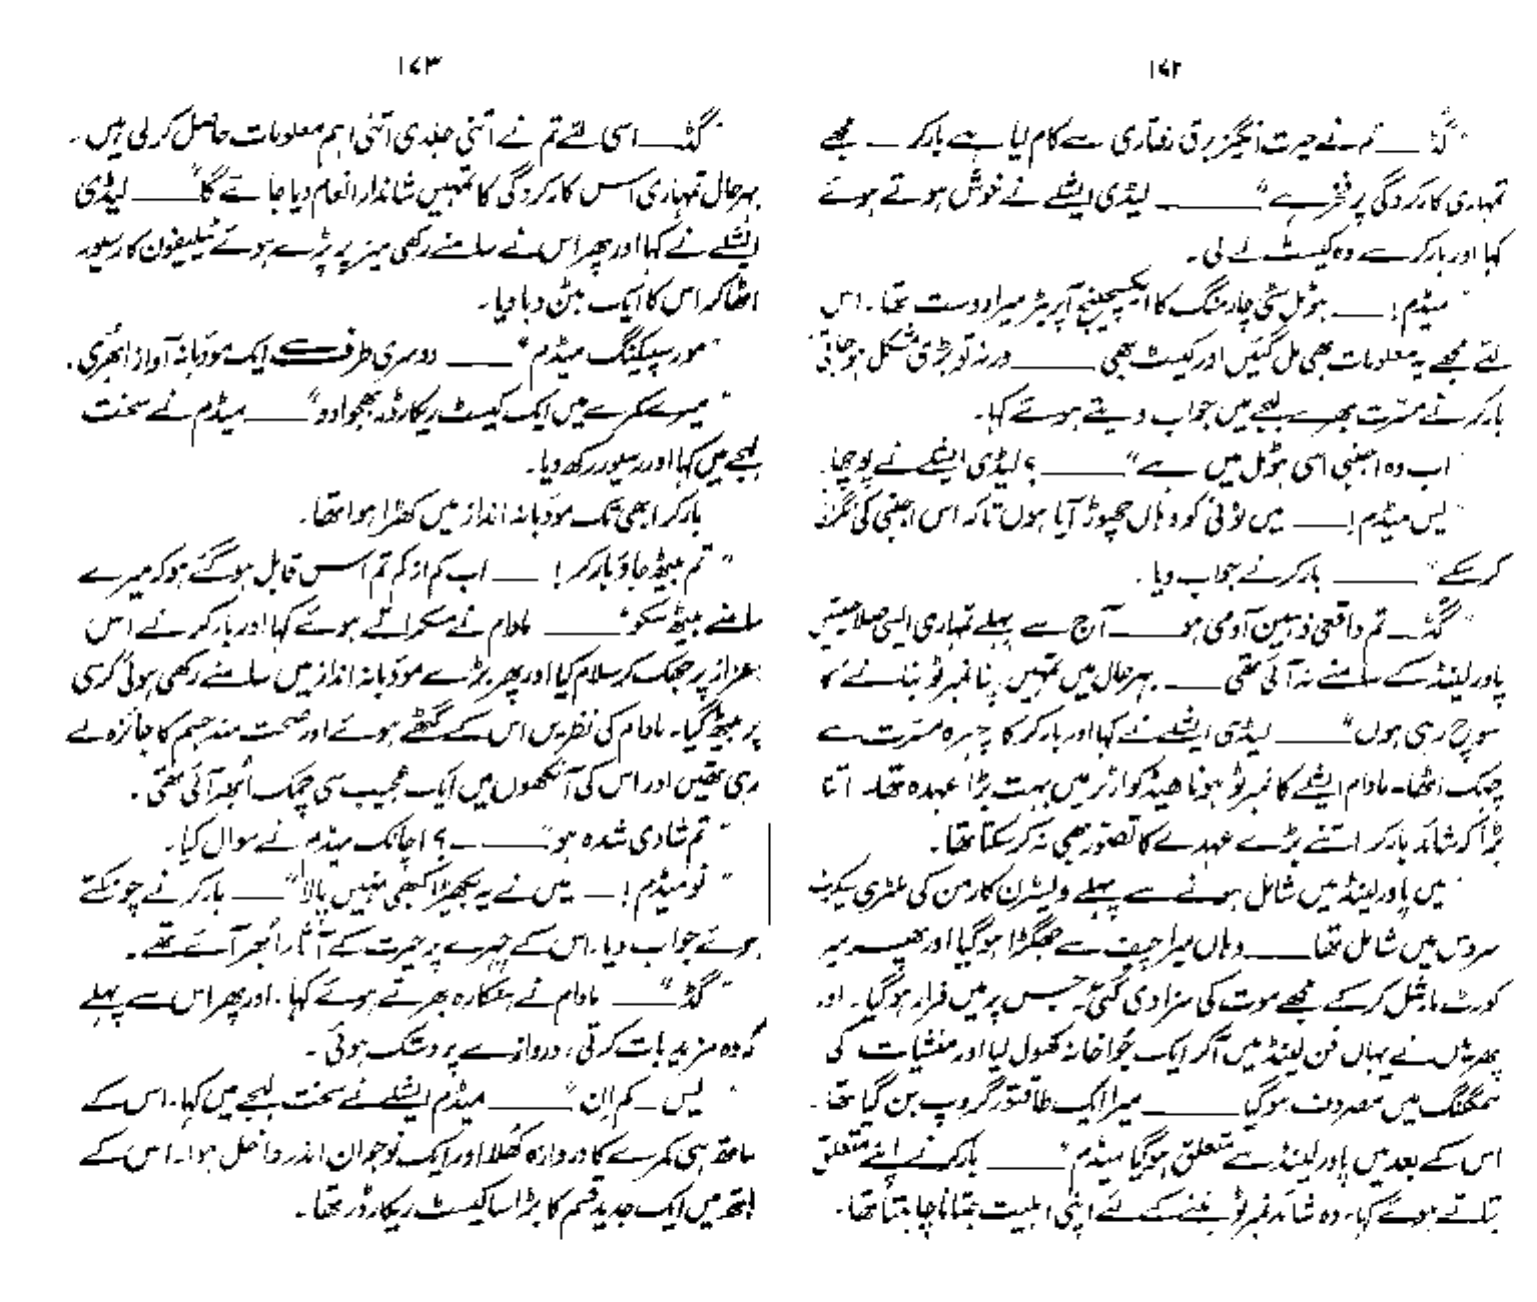 ۱۷۲
"گڈ ــــ تم نے حیرت انگیز برق رفتاری سے کام لیا ہے بارکر ــــ مجھے
تمہاری کارکردگی پر فخر ہے" ــــــــ لیڈی ایشلے نے خوش ہوتے ہوئے
کہا اور بارکر سے وہ کیسٹ لے لی۔
"میڈم! ــــ ہوٹل سٹی چارمنگ کا ایکسچینج آپریٹر میرا دوست تھا۔ اس
لئے مجھے یہ معلومات بھی مل گئیں اور کیسٹ بھی ــــــــ ورنہ تو بڑی مشکل ہو جاتی"
بارکر نے مسرت بھرے لہجے میں جواب دیتے ہوئے کہا۔
"اب وہ اجنبی اسی ہوٹل میں ہے" ــــــــ؟ لیڈی ایشلے نے پوچھا۔
"یس میڈم! ــــ میں ٹونی کو وہاں چھوڑ آیا ہوں تاکہ اس اجنبی کی
کر سکے" ــــــــ بارکر نے جواب دیا۔
"گڈ ــــ تم واقعی ذہین آدمی ہو ــــــــ آج سے پہلے تمہاری ایسی صلاحیتیں
پاور لینڈ کے سامنے نہ آئی تھی ــــ بہرحال میں تمہیں اپنا نمبر ٹو بنانے کا
سوچ رہی ہوں" ــــــــ لیڈی ایشلے نے کہا اور بارکر کا چہرہ مسرت سے
چمک اٹھا۔ مادام ایشلے کا نمبر ٹو ہونا ہیڈ کوارٹر میں بہت بڑا عہدہ تھا۔ اتنا
بڑا کہ شائد بارکر اتنے بڑے عہدے کا تصور بھی نہ کر سکتا تھا۔
"میں پاور لینڈ میں شامل ہونے سے پہلے ویسٹرن کارمن کی ملٹری سیکرٹ
سروس میں شامل تھا ــــــــ وہاں میرا چیف سے جھگڑا ہو گیا اور پھر میرا
کورٹ مارشل کر کے مجھے موت کی سزا دی گئی۔ جس پر میں فرار ہو گیا۔ اور
پھر میں نے یہاں فن لینڈ میں آ کر ایک جُوا خانہ کھول لیا اور منشیات کی
سمگلنگ میں مصروف ہو گیا ــــــــ میرا ایک طاقتور گروپ بن گیا تھا۔
اس کے بعد میں پاور لینڈ سے متعلق ہو گیا میڈم" ــــــــ بارکر نے اپنے متعلق
بتاتے ہوئے کہا۔ وہ شائد نمبر ٹو بننے کے لئے اپنی اہلیت بتانا چاہتا تھا۔
۱۷۳
"گڈ ــــ اسی لئے تم نے اتنی جلدی اتنی اہم معلومات حاصل کر لی ہیں۔
بہرحال تمہاری اس کارکردگی کا تمہیں شاندار انعام دیا جائے گا" ــــــــ لیڈی
ایشلے نے کہا اور پھر اس نے سامنے رکھی میز پر پڑے ہوئے ٹیلیفون کا رسیور
اٹھا کر اس کا ایک بٹن دبا دیا۔
"مورسپیکنگ میڈم" ــــــــ دوسری طرف سے ایک مودبانہ آواز ابھری۔
"میرے کمرے میں ایک کیسٹ ریکارڈر بھجوا دو" ــــــــ میڈم نے سخت
لہجے میں کہا اور رسیور رکھ دیا۔
بارکر ابھی تک مودبانہ انداز میں کھڑا ہوا تھا۔
"تم بیٹھ جاؤ بارکر! ــــ اب کم از کم تم اس قابل ہو گئے ہو کہ میرے
سامنے بیٹھ سکو" ــــــــ مادام نے مسکراتے ہوئے کہا اور بارکر نے اس
اعزاز پر جھک کر سلام کیا اور پھر بڑے مودبانہ انداز میں سامنے رکھی ہوئی کرسی
پر بیٹھ گیا۔ مادام کی نظریں اس کے گٹھے ہوئے اور صحت مند جسم کا جائزہ لے
رہی تھیں اور اس کی آنکھوں میں ایک عجیب سی چمک اُبھر آئی تھی۔
"تم شادی شدہ ہو" ــــــــ؟ اچانک میڈم نے سوال کیا۔
"نو میڈم! ــــ میں نے یہ بکھیڑا کبھی نہیں پالا" ــــــــ بارکر نے چونکتے
ہوئے جواب دیا۔ اس کے چہرے پر حیرت کے آثار اُبھر آئے تھے۔
"گڈ" ــــــــ مادام نے ہنکارہ بھرتے ہوئے کہا۔ اور پھر اس سے پہلے
کہ وہ مزید بات کرتی، دروازے پر دستک ہوئی۔
"یس ــــ کم اِن" ــــــــ میڈم ایشلے نے سخت لہجے میں کہا۔ اس کے
ساتھ ہی کمرے کا دروازہ کھلا اور ایک نوجوان اندر داخل ہوا۔ اس کے
ہاتھ میں ایک جدید قسم کا بڑا سا کیسٹ ریکارڈر تھا۔